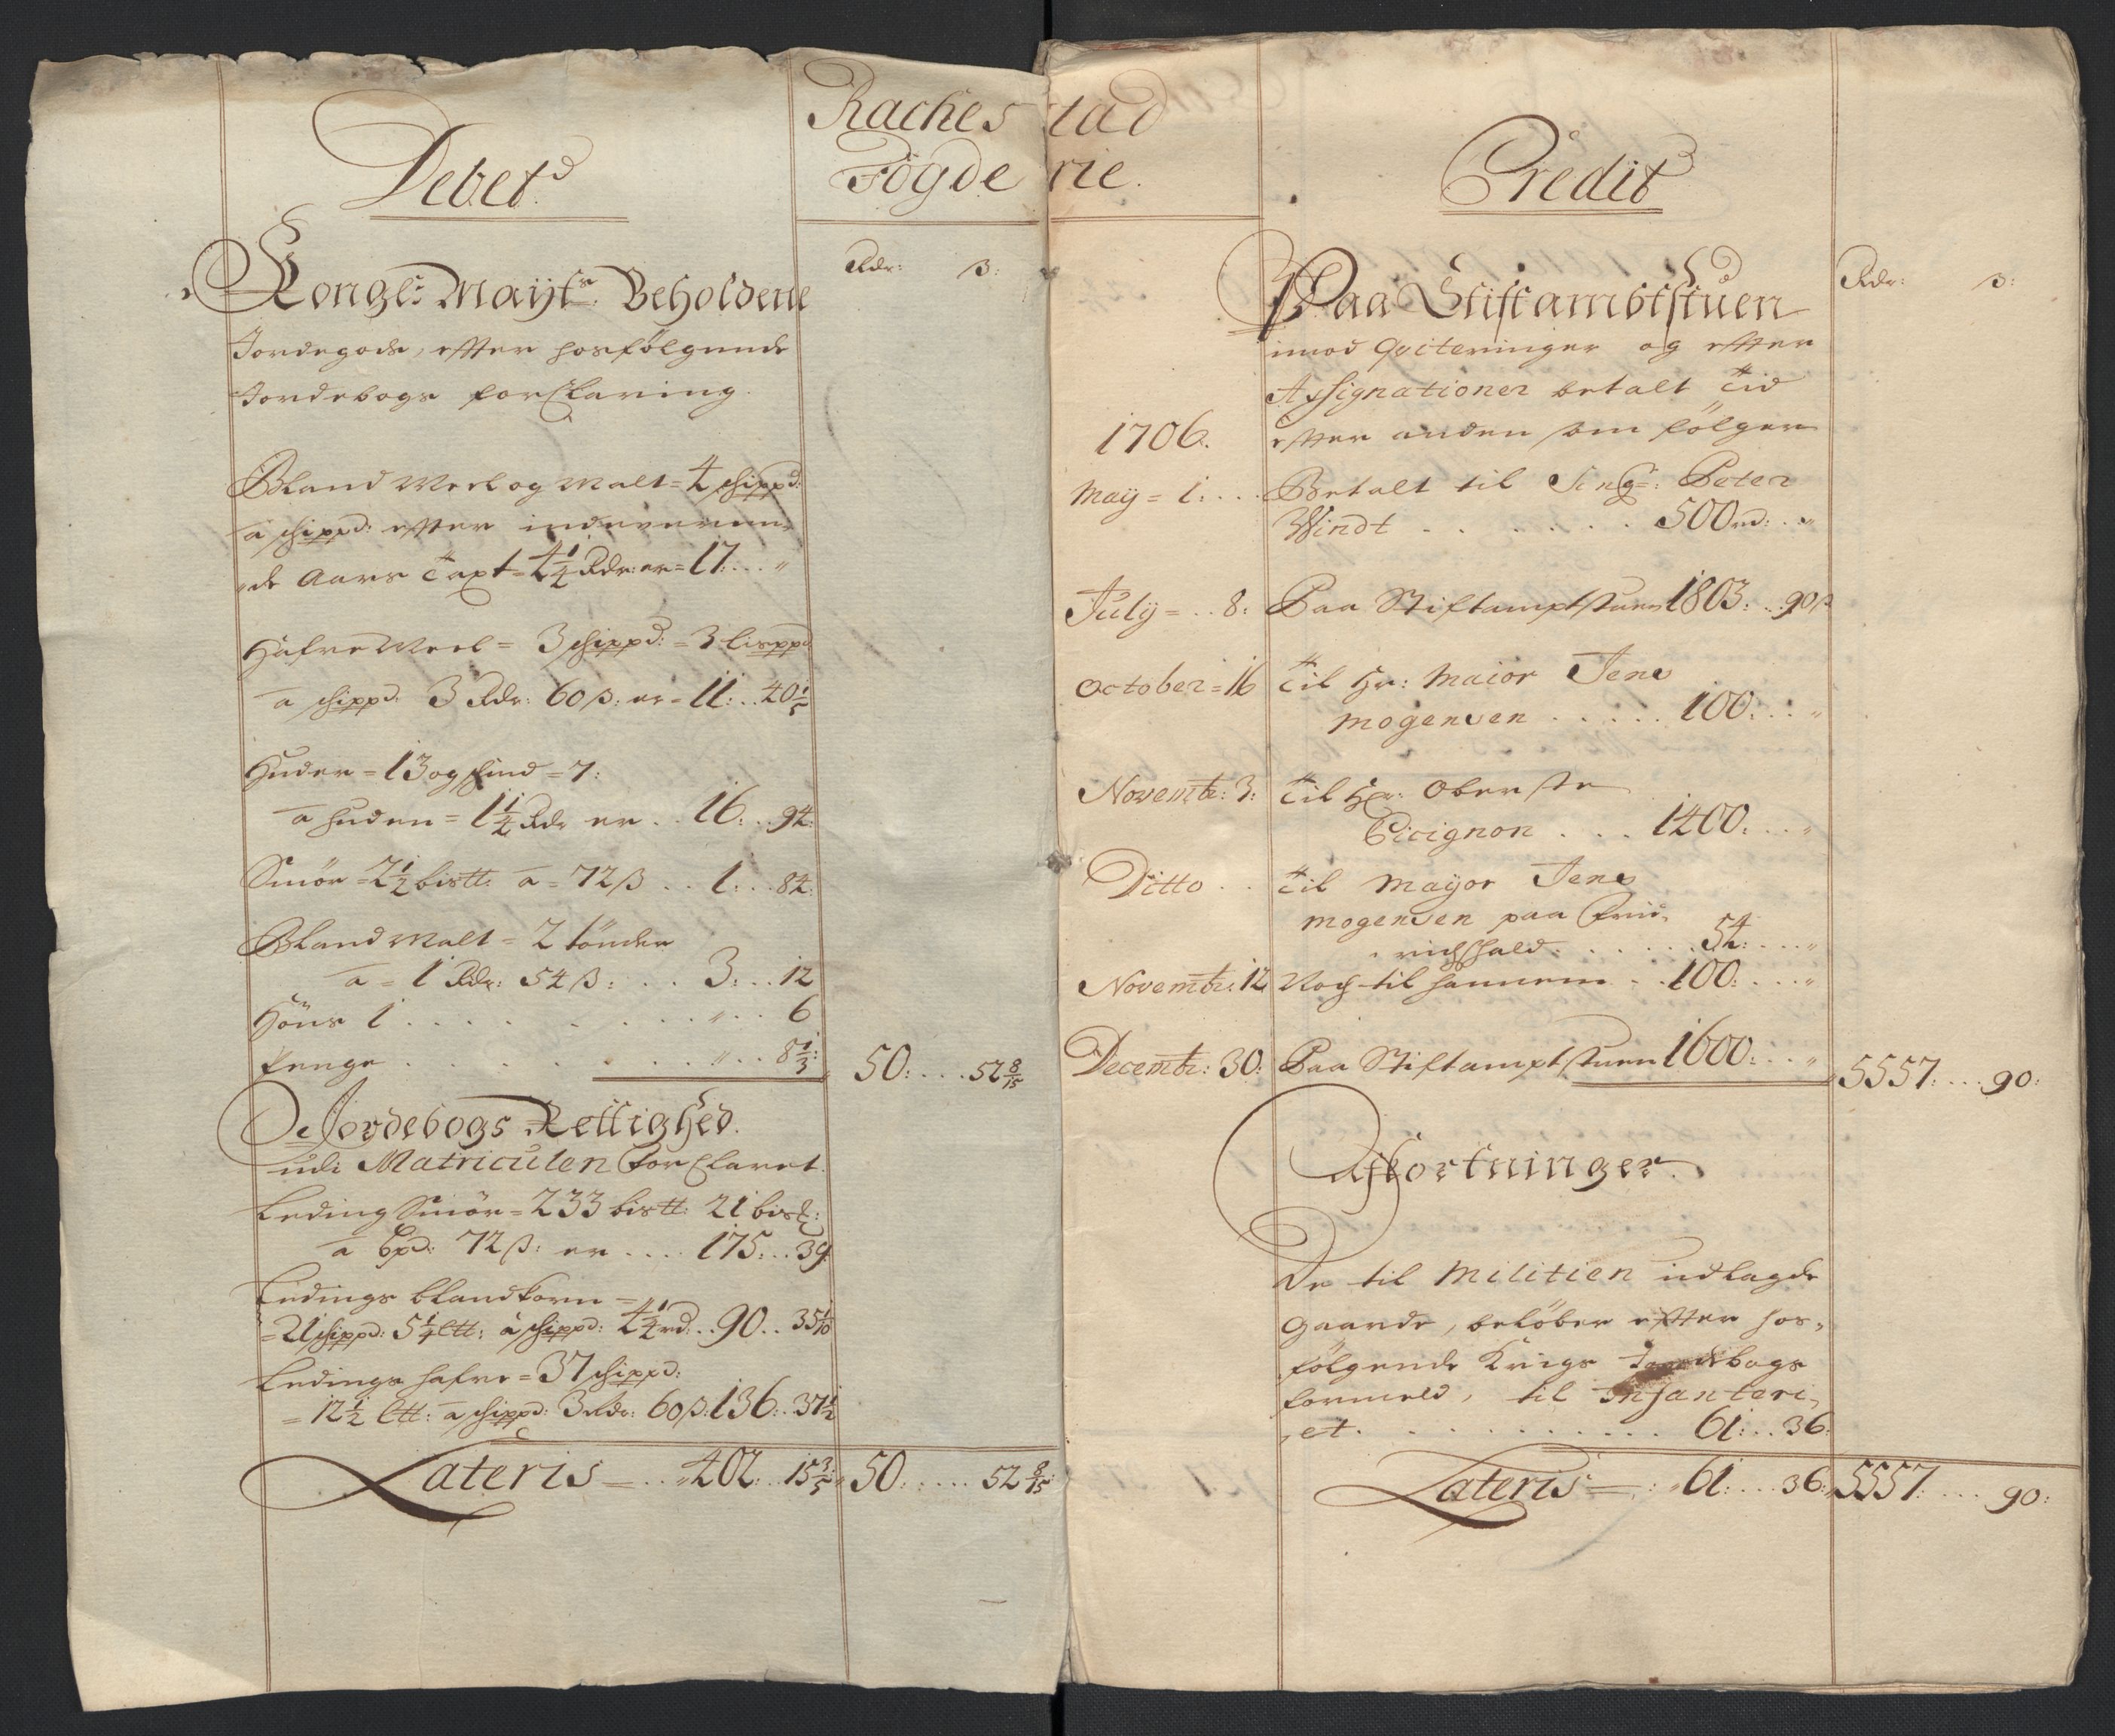 Rachestad
Fögderie.
Debet
Rdr: ß:
Kongl: Mayts: Beholdene
Jordegods, efter hosfølgende
Jordebogs forklaring.
Bland Meel og Malt = 4 schippd:
a schippd: efter indeværen-
de Aars Taxt = 4 1/4 Rdr: er = 17: . . "
Hafre Meel = 3 schippd: = 3 lisppd
a schippd. 3 Rdr: 60 ß: er = 11: . . 40 1/5
Huder = 13 og skind = 7:
a huden = 1 1/4 Rdr er . . 16: . . 94:
Smör = 2 1/2 bistt: a = 72 ß . . 1: . . 84:
Bland Malt = 2 tönder
a = 1 Rdr: 54 ß: . . . 3: . . 12
Höns 1 . . . . . . . . " . . 6
Penge . . . . . . . . " . . 8 1/3: 50: . . . 52 8/15
Jordebogs Rettighed.
udi Matriculen forklaret.
Leding Smör = 233 bistt: 21 bisk:
a Bpd: 72 ß: er . . . . 175: . . 39
Ledings blandkorn =
= 21 schippd: 5 1/4 Ltt: à schippd: 4 1/4 rd: . . 90 . . 35 1/10
Ledings hafre = 37 schippd:
= 12 1/2 Ltt: a schippd: 3 Rdr: 60 ß: 136: . . 37 1/2
Lateris = . . 402: . . 15 3/5 50: . . . . 52 8/15
Credit
Rdr: ß:
Paa Stiftambtstuen
imod Qviteringer og efter
Assignationer betalt Tid
1706. efter anden som følger
May = 1: . . . Betalt til Sing: Peter
Windt . . . . . . 500 rd: . . "
July = . . 8: Paa Stiftamptstuen 1803: . . 90 ß
October = 16 Til Hr: Maior Jens
Mogensen . . . . . 100: . . "
Novembr: 3: Til Hr: Oberste
Cicignon . . . 1400: . . . "
Ditto . . Til Mayor Jens
Mogensen paa Frid-
richshald . . . . . . 54: . . . "
Novembr: 12 Noch til hannem . . 100: . . . "
Decembr: 30: Paa Stiftamptstuen 1600: . . " 5557: . . . 90:
Afkortninger.
De til Militien udlagde
Gaarde, beløber efter hos-
følgende Krigs Jordebogs
formeld, til Infanteri-
et . . . . . . . . . . . 61: . . 36:
Lateris = . . 61: . . . 36: 5557: . . . 90: